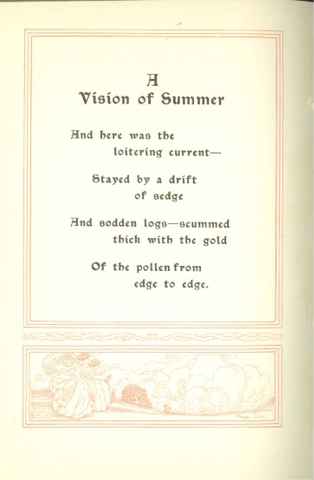 A
Vision of Summer
And here was the
loitering current—
Stayed by a drift
of sedge
And sodden logs—scummed
thick with the gold
Of the pollen from
edge to edge.